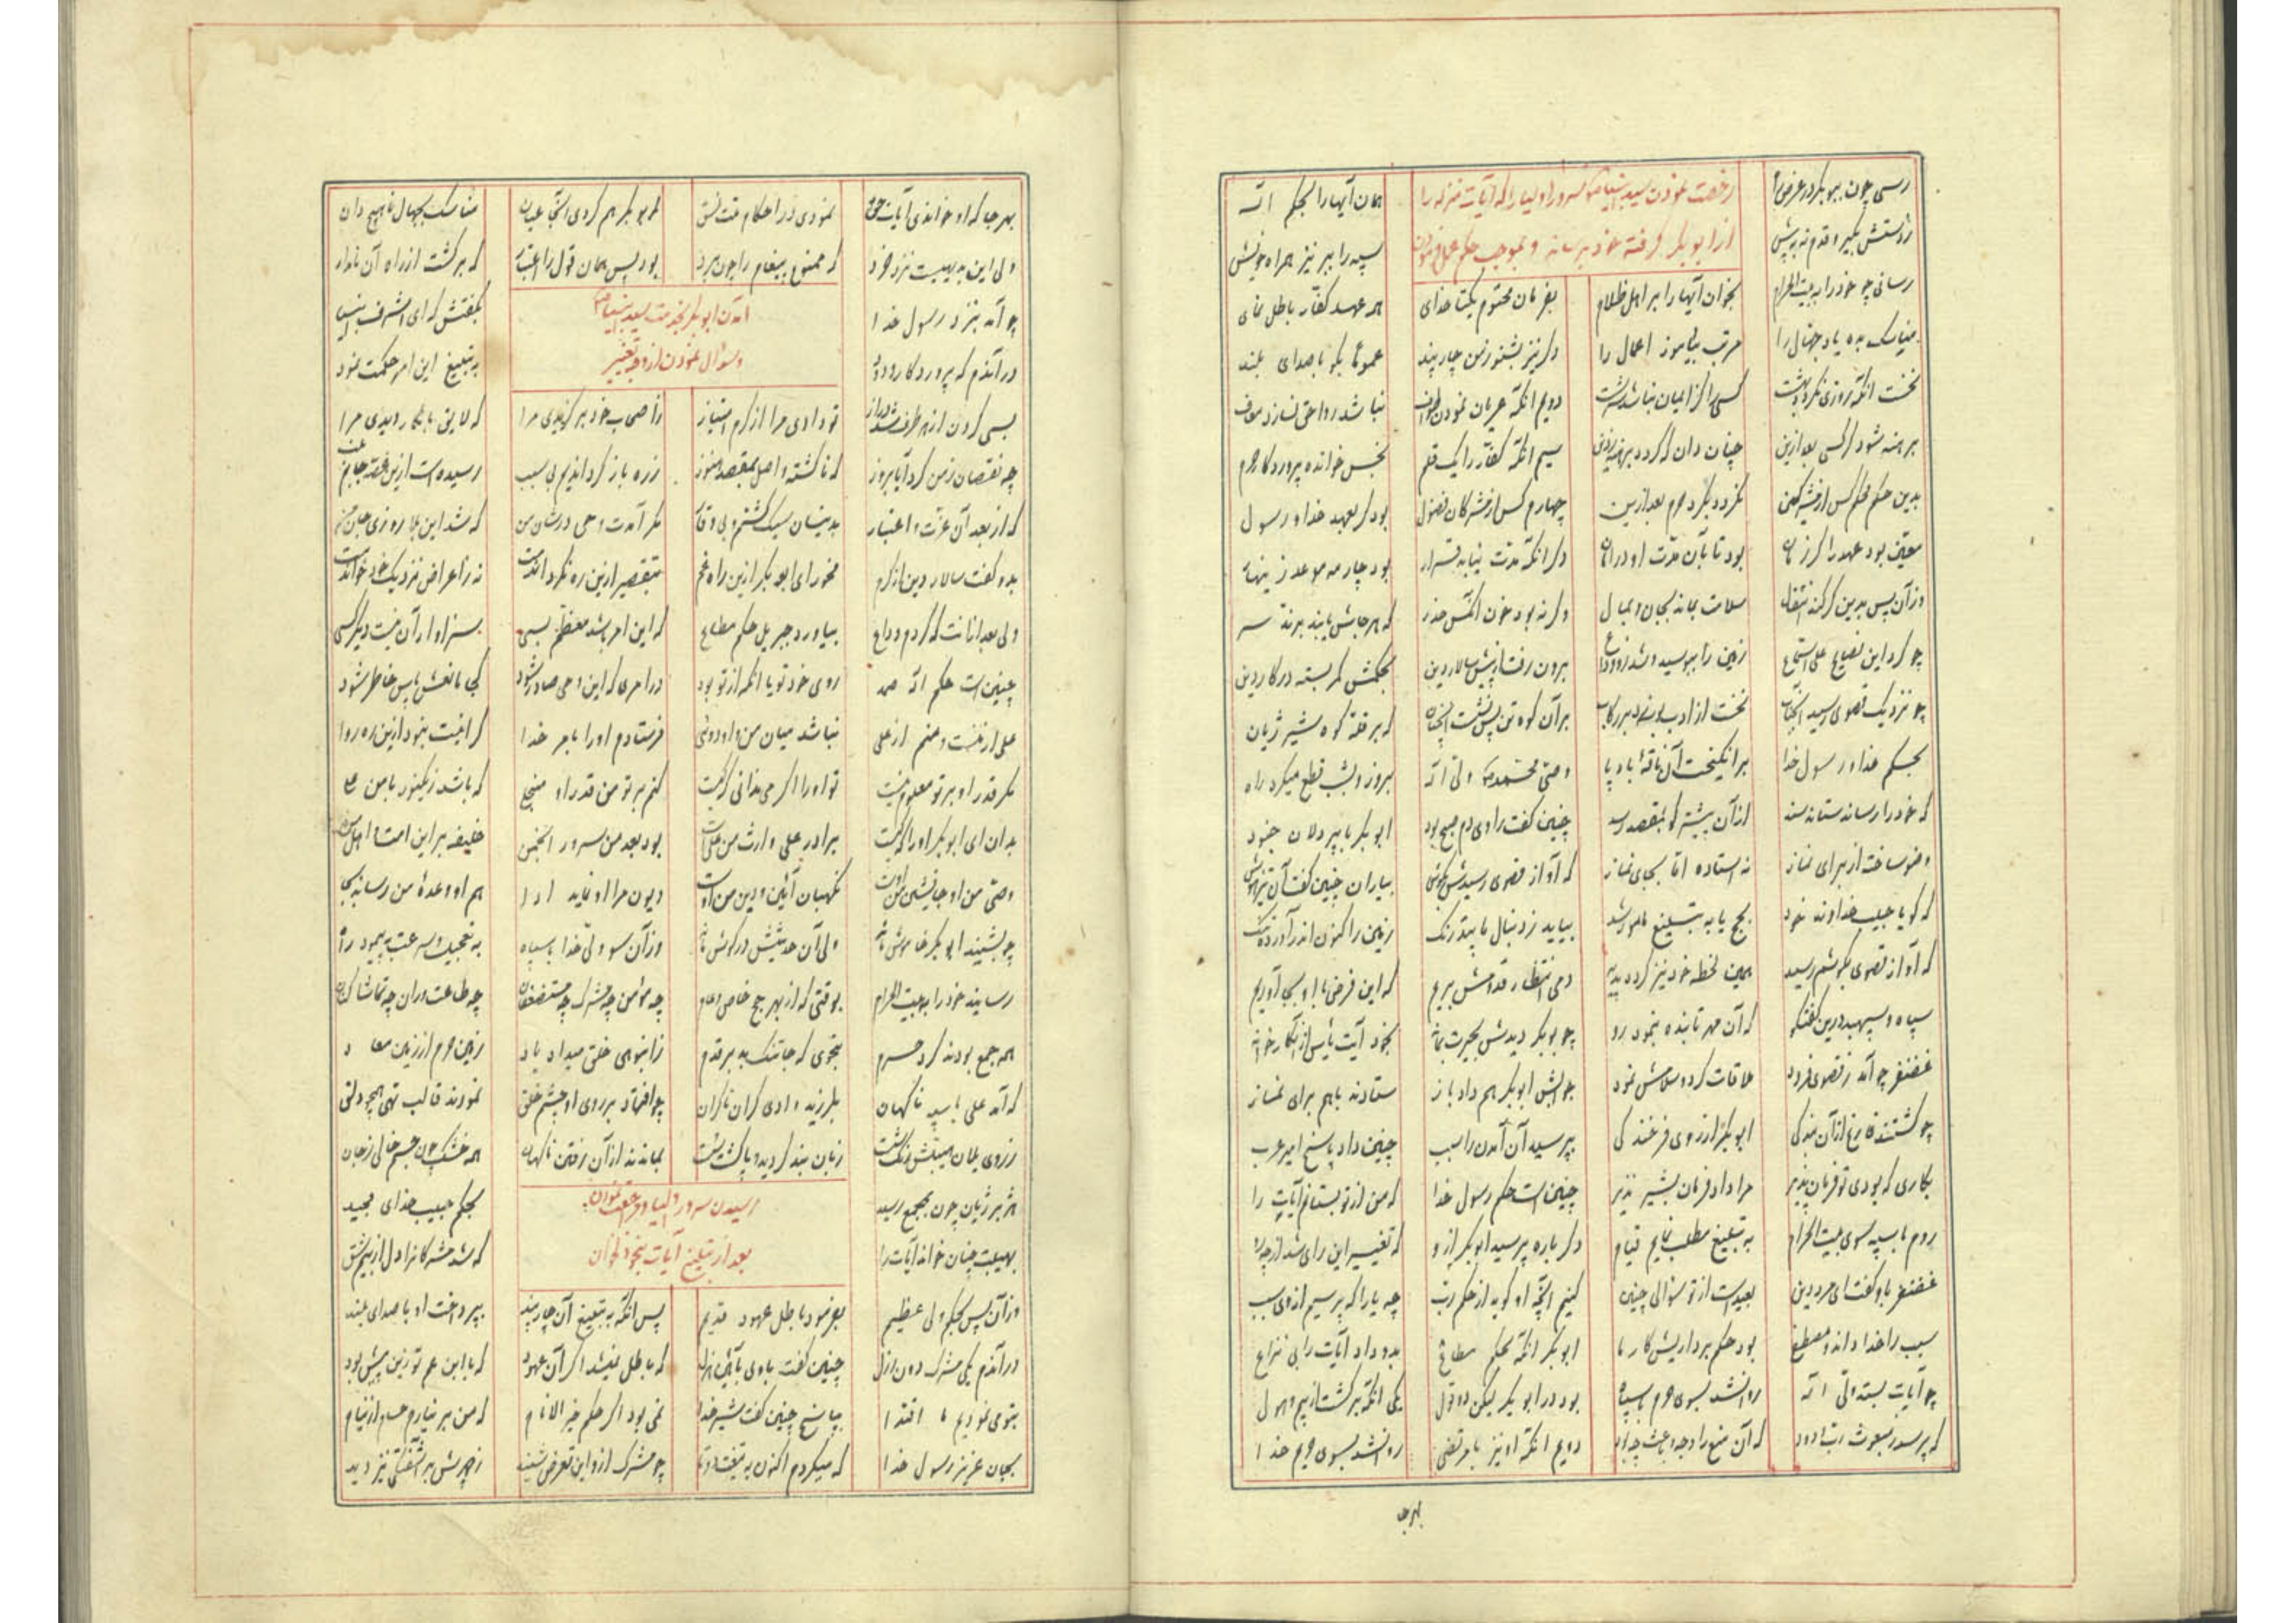 رسی چون ببوبکر در عرض راه
همان آیها را بحکم اله
رخصت نمودن سید انبیا سرور اولیا را که آیات منزله را
از ابوبکر گرفته خود برساند و بموجب حکم عمل نمودن
ز دستش بگیر و قدم نه به پیش
سپه را ببر نیز همراه خویش
رسانی چو خود را به بیت الحرام
بخوان آیها را بر اهل ظلام
بفرمان محتوم یکتا خدای
همه عهد کفار باطل نمای
مناسک بده یاد جهال را
مرتب بیاموز اعمال را
دگر نیز بشنو ز من چار پند
عموما بگو با صدای بلند
نخست آنکه روزی نگردد بهشت
کسی را کز ایمان نباشد سرشت
دویم آنکه عریان نمودن طواف
نباشد روا حق نسازد معاف
برهنه شود گر کسی بعد ازین
چنان دان که گردد برهنه ز دین
سیم آنکه کفار را یک قلم
نجس خوانده پروردگار حرم
بدین حکم محکم کس از مشرکین
نگردد بگرد حرم بعد ازین
چهارم کس از مشرکان فضول
بود گر بعهد خدا و رسول
معین بود عهد را گر زمان
بود تا بآن مدت او در امان
دگر آنکه مدت نیابد قرار
بود چار مه موعد زینهار
وز آن پس بدین گر کند انتقال
سلامت بماند بجان و بمال
وگرنه بود خون آنکس هدر
که هر جاش یابند برند سر
چو کرد این نصایح علی استماع
زمین را ببوسید و شد زو وداع
برون رفت از پیش سالار دین
بحکمش کمر بسته در کار دین
چو نزدیک قصوی رسید آنجناب
نخست از ادب بوسه زد بر رکاب
بر آن کوه تن پس نشست آنچنان
که بر قله کوه شیر ژیان
بحکم خدا و رسول خدا
برانگیخت آن ناقه باد پا
وصی محمد ولی اله
بروز و بشب قطع میکرد راه
که خود را رساند ستاند سند
از آن پیشتر کو بمقصد رسد
چنین گفت راوی دم صبح بود
ابوبکر با پر دلان جنود
وضو ساخته از برای نماز
نه استاده اما بجای نماز
که آواز قصوی رسیدش بگوش
بیاران چنین گفت آن تیزهوش
که گویا حبیب خداوند خود
بحج یا به تبلیغ مامور شد
بیاید ز دنبال ما بیدرنگ
زمین را کنون اندر آورده تنگ
که آواز قصوی بگوشم رسید
همین لحظه خود نیز گردد پدید
دمی انتظار قدومش بریم
که این فرض با او بجا آوریم
سپاه و سپهبد درین گفتگو
که آن مهر تابنده بنمود رو
چو بوبکر دیدش بحیرت بماند
بخود آیت یأس از آنکار خواند
غضنفر چو آمد ز قصوی فرود
ملاقات کرد و سلامش نمود
جوابش ابوبکر هم داد باز
ستادند باهم برای نماز
چو گشتند فارغ از آن بندگی
ابوبکر از روی فرخندگی
بپرسید از آن آمدن را سبب
چنین داد پاسخ امیر عرب
بکاری که بودی تو فرمان پذیر
مرا داد فرمان بشیر نذیر
چنین است حکم رسول خدا
که من از تو بستانم آیات را
روم با سپه سوی بیت الحرام
به تبلیغ مطلب نمایم قیام
دگرباره پرسید ابوبکر ازو
که تغییر این رای شد از چه رو
غضنفر باو گفت ای مرد دین
بعید است از تو سؤالی چنین
کنیم آنچه او گوید از حکم رب
چه یارا که پرسیم از وی سبب
سبب را خدا داند و مصطفی
بود حکم بردار پیش کار ما
ابوبکر آنگه بحکم مطاع
بدو داد آیات را بی نزاع
چو آیات بستد ولی اله
روانشد بسوی حرم با سپاه
بود در ابوبکر لیکن دو قول
یکی آنکه برگشت از بیم و هول
که پرسد ز مبعوث رب ودود
که آن منع را وجه و باعث چه بود
دویم آنکه او نیز با مرتضی
روانشد بسوی حریم خدا
بهرجا
بهر جا که او خواندی آیات حق
نمودی در احکام مت نسق
ابوبکر هم کردی آنجا عیان
مناسک بجهال ناهیج دان
ولی این به هیبت نزد خرد
که ممنوع پیغام را چون برد
بود پس همان قول را اعتبار
که برگشت از راه آن نامدار
آمدن ابوبکر بخدمت سید انبیا
و سؤال نمودن از وجه تغییر
چو آمد بنزد رسول خدا
بگفتش که ای اشرف انبیا
در آندم که پروردگار ودود
به تبلیغ این امر حکمت نمود
بسی گردن از هر طرف شد دراز
تو دادی مرا از کرم امتیاز
ز اصحاب خود برگزیدی مرا
که لایق باینکار دیدی مرا
چه نقصان ز من کرد آیا بروز
که ناگشته واصل بمقصد هنوز
ز ره باز گرداندیم بی سبب
رسیده است ازین غصه جانم بلب
که از بعد آن عزت و اعتبار
بدینسان سبک گشتم و بی وقار
مگر آمدت وحی در شان من
که شد این بلا روزی جان من
بدو گفت سالار دین از کرم
مخور ای ابوبکر ازین راه غم
بتقصیر ازین ره نگرداندمت
نه ز اعراض نزدیک خود خواندمت
ولی بعد از آنت که کردم وداع
بیاورد جبریل حکم مطاع
که این امر باشد معظم بسی
سزاوار آن نیست دیگر کسی
چنین است حکم اله صمد
روی خود تو یا آنکه از تو بود
در امری که این وحی صادر شود
کجا مانعش پاس خاطر شود
علی از منست و منم از علی
نباشد میان من و او دوئی
فرستادم او را بامر خدا
مگر قدر او بر تو معلوم نیست
تو او را اگر می ندانی که کیست
کنم بر تو من قدر او منجلی
که باشد ز یکنور با من علی
بدان ای ابوبکر او را که کیست
برادر علی وارث من علی است
بود بعد من سرور انجمن
خلیفه بر این امت و اهل من
وصی من او جانشین من اوست
نگهبان آئین و دین من اوست
دیون مرا او نماید ادا
هم او وعده من رساند بجا
چو بشنید ابوبکر خاموش ماند
ولی آن حدیثش در گوش ماند
وز آن سو ولی خدا با سپاه
به تعجیل و سرعت به پیمود راه
رسانید خود را به بیت الحرام
بوقتی که از بهر حج خاص و عام
چه مؤمن چه مشرک چه مستضعفان
چه طاعت وران چه تماشا کنان
همه جمع بودند گرد حرم
بنحوی که جا تنک بد بر قدم
ز انبوهی خلق میداد یاد
زمین حرم از زمین معاد
که آمد علی با سپه ناگهان
بلرزید وادی کران تا کران
چو افتاد بر روی او چشم خلق
نمودند قالب تهی همچو دلق
ز روی یلان هیبتش رنگ شست
زبان بند گردید و پا گشت سست
بماندند از آن رفتن ناگهان
همه خشک چون جسم خالی ز جان
رسیدن سرور اولیا
بعد از تبلیغ آیات بنحو نمودن
هژبر ژیان چون بمجمع رسید
بحکم حبیب خدای مجید
بهیبت چنان خواند آیات را
که شد مشرکانرا دل از بیم شق
وز آن پس بحکم ولی عظیم
بفرمود باطل عهود قدیم
پس آنگه به تبلیغ آن چار پند
بپرداخت او با صدای بلند
در آندم یکی مشرک دون ازل
چنین گفت باوی
که باطل نمیشد اگر آن عهود
که با ابن عم تو زین پیش بود
بتو می نمودیم ما اقتدا
بپاسخ چنین گفت شیر خدا
نمی بود اگر حکم خیر الانام
که من بر نیارم حسام از نیام
بجان عزیز رسول خدا
که میکردم اکنون به تیغت دو تا
چو مشرک ازو این تعرض شنید
ز چهرش بر آشفتگی نیز دید